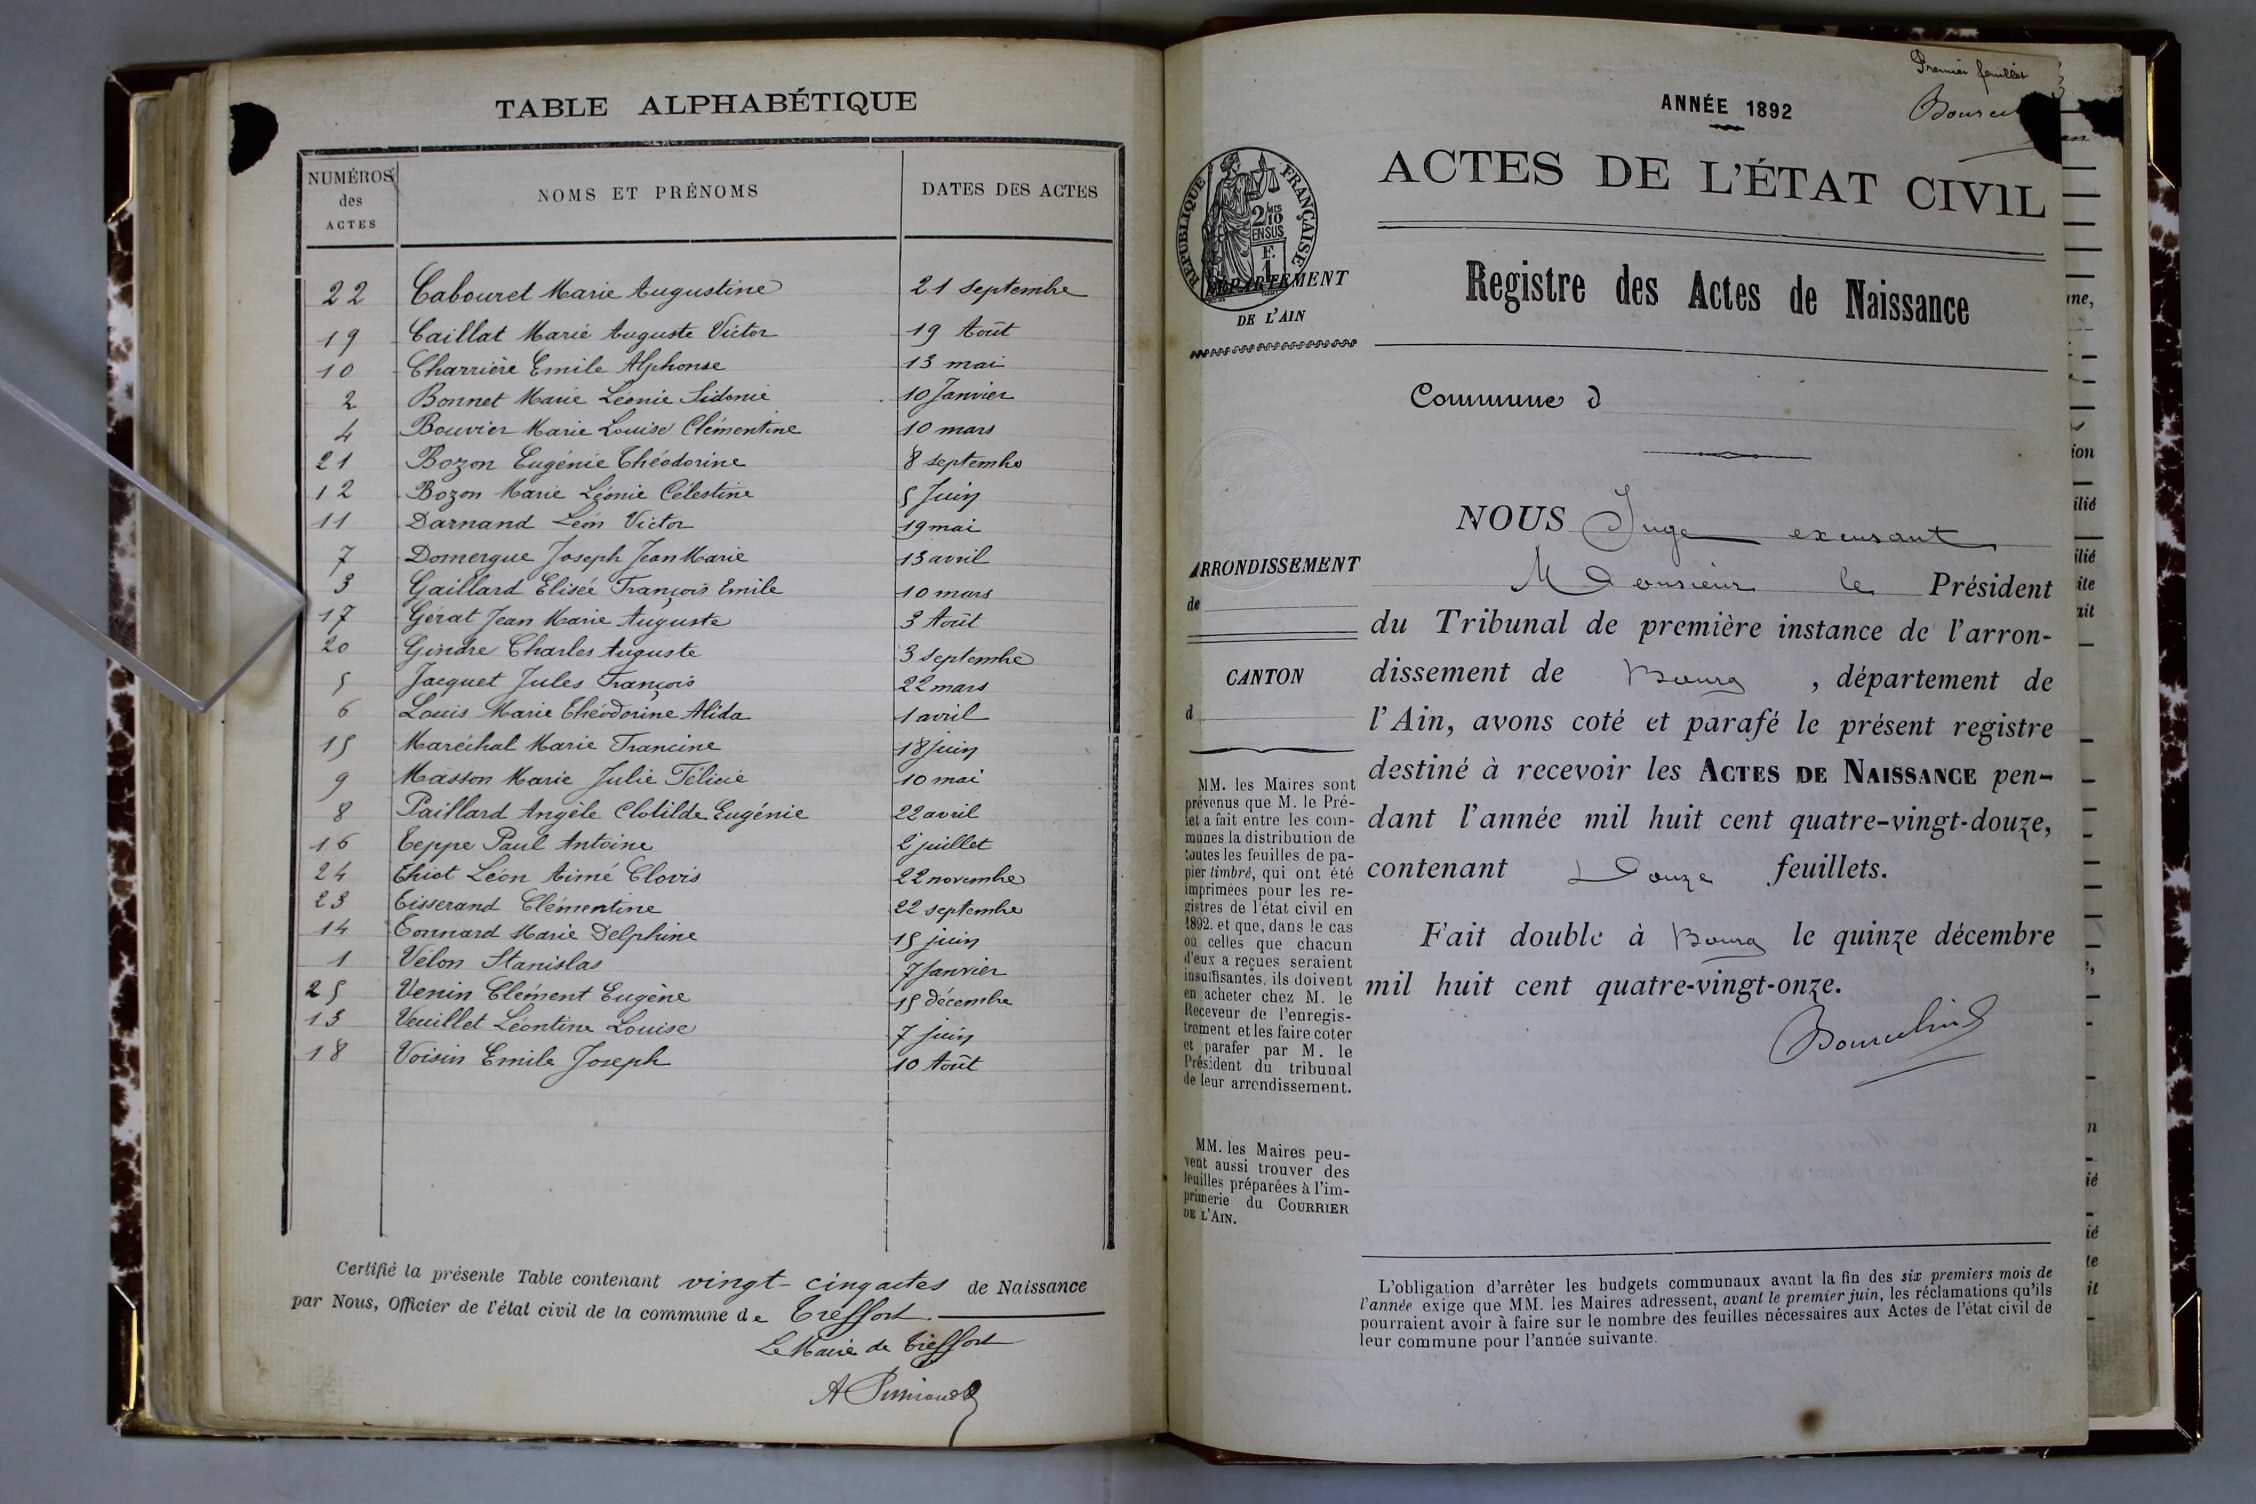 TABLE ALPHABÉTIQUE
NUMÉROS des ACTES NOMS ET PRÉNOMS DATES DES ACTES
22 Cabouret Marie Augustine 21 Septembre
19 Caillat Marie Auguste Victor 19 Août
10 Charrière Emile Alphonse 13 mai
2 Bonnet Marie Léonie Sidonie 10 Janvier
4 Bouvier Marie Louise Clémentine 10 mars
21 Bozon Eugénie Théodorine 8 septembre
12 Bozon Marie Léonie Célestine 5 Juin
11 Darnand Léon Victor 19 mai
7 Domergue Joseph Jean Marie 13 avril
3 Gaillard Elisée François Emile 10 mars
17 Gérat Jean Marie Auguste 3 Août
20 Gindre Charles Auguste 3 Septembre
5 Jacquet Jules François 22 mars
6 Louis Marie Théodorine Alida 1 avril
15 Maréchal Marie Francine 18 juin
9 Masson Marie Julie Félicie 10 mai
8 Paillard Angèle Clotilde Eugénie 22 avril
16 Teppe Paul Antoine 2 juillet
24 Thiot Léon Aimé Clovis 22 novembre
23 Tisserand Clémentine 22 septembre
14 Tonnard Marie Delphine 15 juin
1 Vélon Stanislas 7 Janvier
25 Venin Clément Eugène 15 décembre
13 Veuillet Léontine Louise 7 juin
18 Voisin Emile Joseph 10 Août
Certifié la présente Table contenant vingt-cinq actes de Naissance
par Nous, Officier de l'état civil de la commune de Treffort.
Le Maire de Treffort
Premier feuillet
ANNÉE 1892
ACTES DE L'ÉTAT CIVIL
RÉPUBLIQUE FRANÇAISE
DÉPARTEMENT
DE L'AIN
Registre des Actes de Naissance
Commune d
NOUS Juge excusant
Monsieur le Président
du Tribunal de première instance de l'arron-
dissement de Bourg, département de
l'Ain, avons coté et parafé le présent registre
destiné à recevoir les ACTES DE NAISSANCE pen-
dant l'année mil huit cent quatre-vingt-douze,
contenant Douze feuillets.
Fait double à Bourg le quinze décembre
mil huit cent quatre-vingt-onze.
ARRONDISSEMENT
de
CANTON
d
MM. les Maires sont
prévenus que M. le Pré-
fet a fait entre les com-
munes la distribution de
toutes les feuilles de pa-
pier timbré, qui ont été
imprimées pour les re-
gistres de l'état civil en
1892. et que, dans le cas
où celles que chacun
d'eux a reçues seraient
insuffisantes, ils doivent
en acheter chez M. le
Receveur de l'enregis-
trement et les faire coter
et parafer par M. le
Président du tribunal
de leur arrondissement.
MM. les Maires peu-
vent aussi trouver des
feuilles préparées à l'im-
primerie du COURRIER
DE L'AIN.
L'obligation d'arrêter les budgets communaux avant la fin des six premiers mois de
l'année exige que MM. les Maires adressent, avant le premier juin, les réclamations qu'ils
pourraient avoir à faire sur le nombre des feuilles nécessaires aux Actes de l'état civil de
leur commune pour l'année suivante.